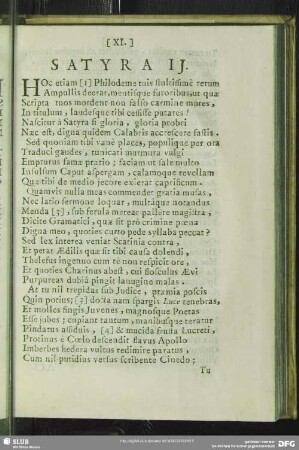 [ XI. ]
SATYRA IJ.
HOc etiam [1] Philodeme tuis stultissimè rerum
Ampullis deerat, mentisque furoribus, ut quæ
Scripta tuos mordent non falso carmine mures,
In titulum, laudesque tibi cessisse putares?
Nascitur à Satyra si gloria, gloria probri
Næc est, digna quidem Calabris accrescere fastis.
Sed quoniam tibi vanè places, populique per ora
Traduci gaudes, tunicati murmura vulgi
Empturus famæ pratio; faciam ut sale multo
Insulsum Caput aspergam, calamoque revellam
Quæ tibi de medio jecore exierat caprificum.
Quamvis nulla meas commendet gratia musas,
Nec latio sermone loquar, multáque notandus
Menda [2], sub ferula merear passere magistra,
Dicite Gramatici, quæ sit prò crimine pœna
Digna meo, quoties curto pede syllaba peccat?
Sed lex interea veniat Scatinia contra,
Et petat Ædilis quæ sit tibi causa dolendi,
Thelesus ingenuo cum te non respicit ore,
Et quoties Charinus abest, cui flosculus Ævi
Purpureas dubiâ pingis lanugine malas.
At tu nil trepidas sub Judice, præmia poscis
Quin potius; [3] docta nam spargis Luce tenebras,
Et molles fingis Juvenes, magnosque Poetas
Esse jubes; cupiant tantum, manibusque terantur
Pindatus assiduis, [4] & mucida frusta Lucreti,
Protinus è Cœlo descendit flavus Apollo
Imberbes hedera vultus redimire paratus,
Cum nil putidius versus scribente Cinedo;
Tu
SLUB
Wir führen Wissen.
DFG